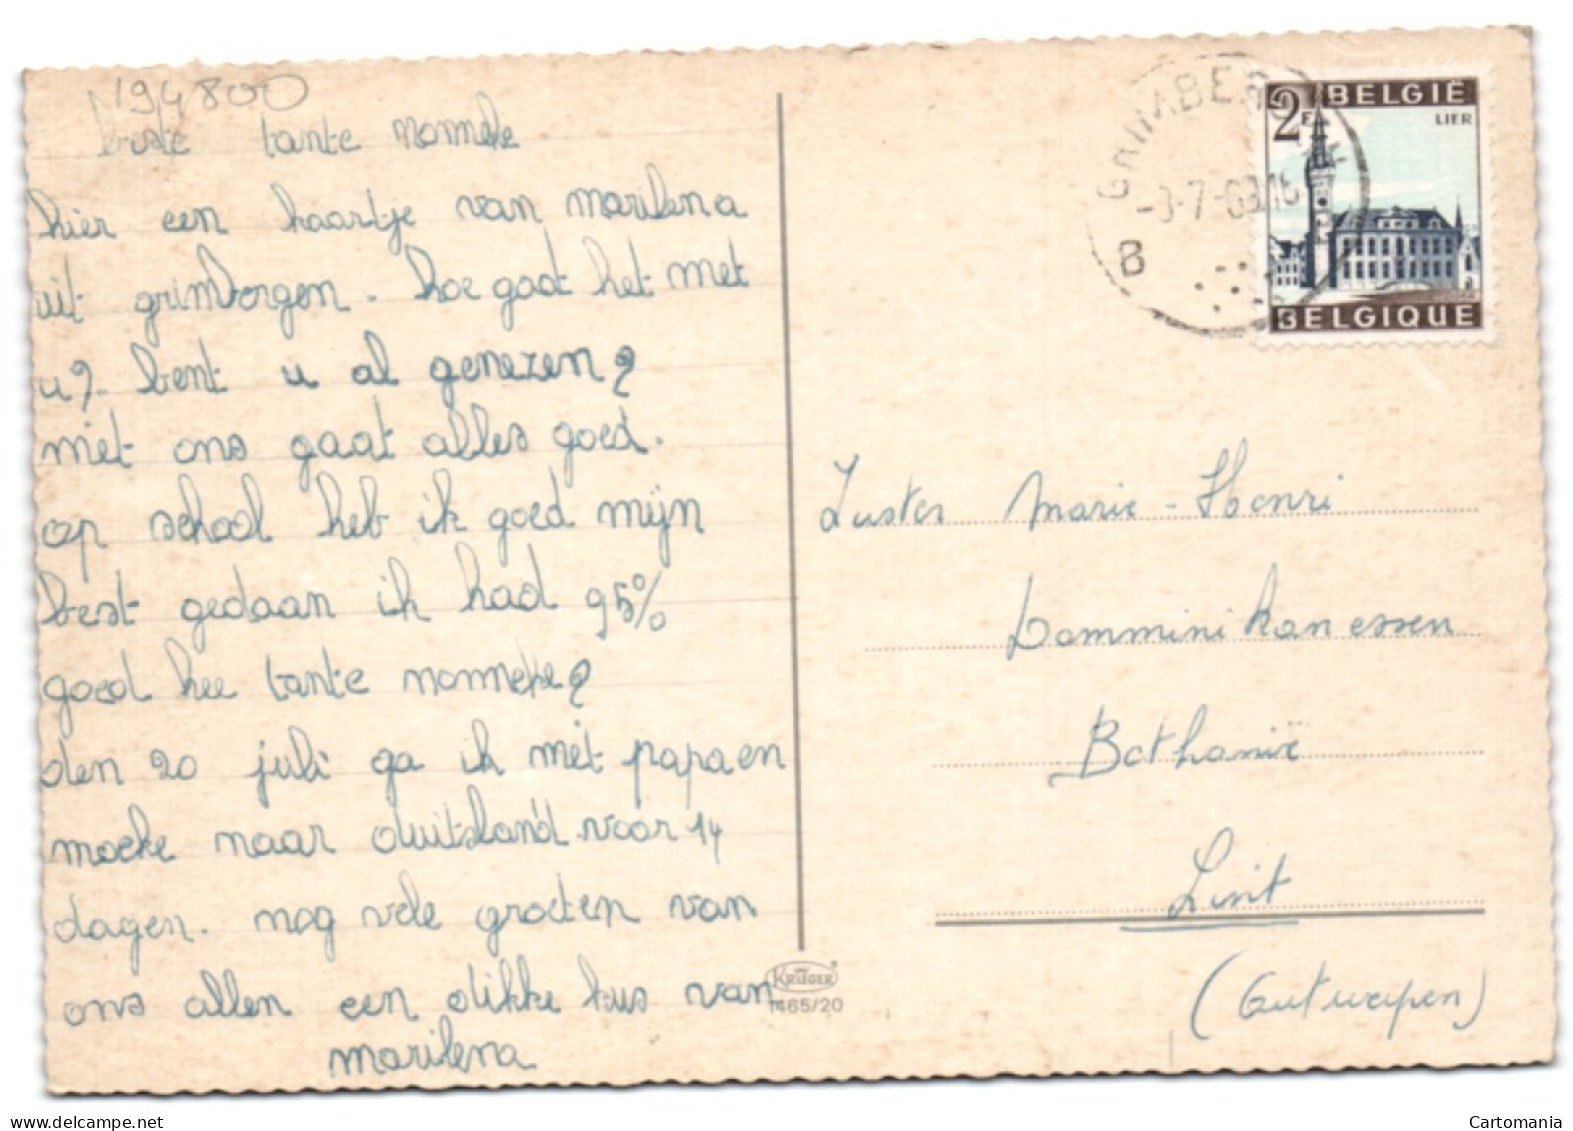 194800
beste tante nonneke
hier een kaartje van marilena
uit grimbergen. hoe gaat het met
u?. bent u al genezen?
met ons gaat alles goed.
op school heb ik goed mijn
best gedaan ik had 95%
goed hee tante nonneke?
den 20 juli ga ik met papa en
moeke naar duitsland voor 14
dagen. nog vele groeten van
ons allen een dikke kus van
marilena
GRIMBERGEN
B
2F BELGIË
LIER
BELGIQUE
Zuster Marie-Henri
Domminikanessen
Bethanie
Lint
(Antwerpen)
KRÜGER
1465/20
www.delcampe.net
Cartomania